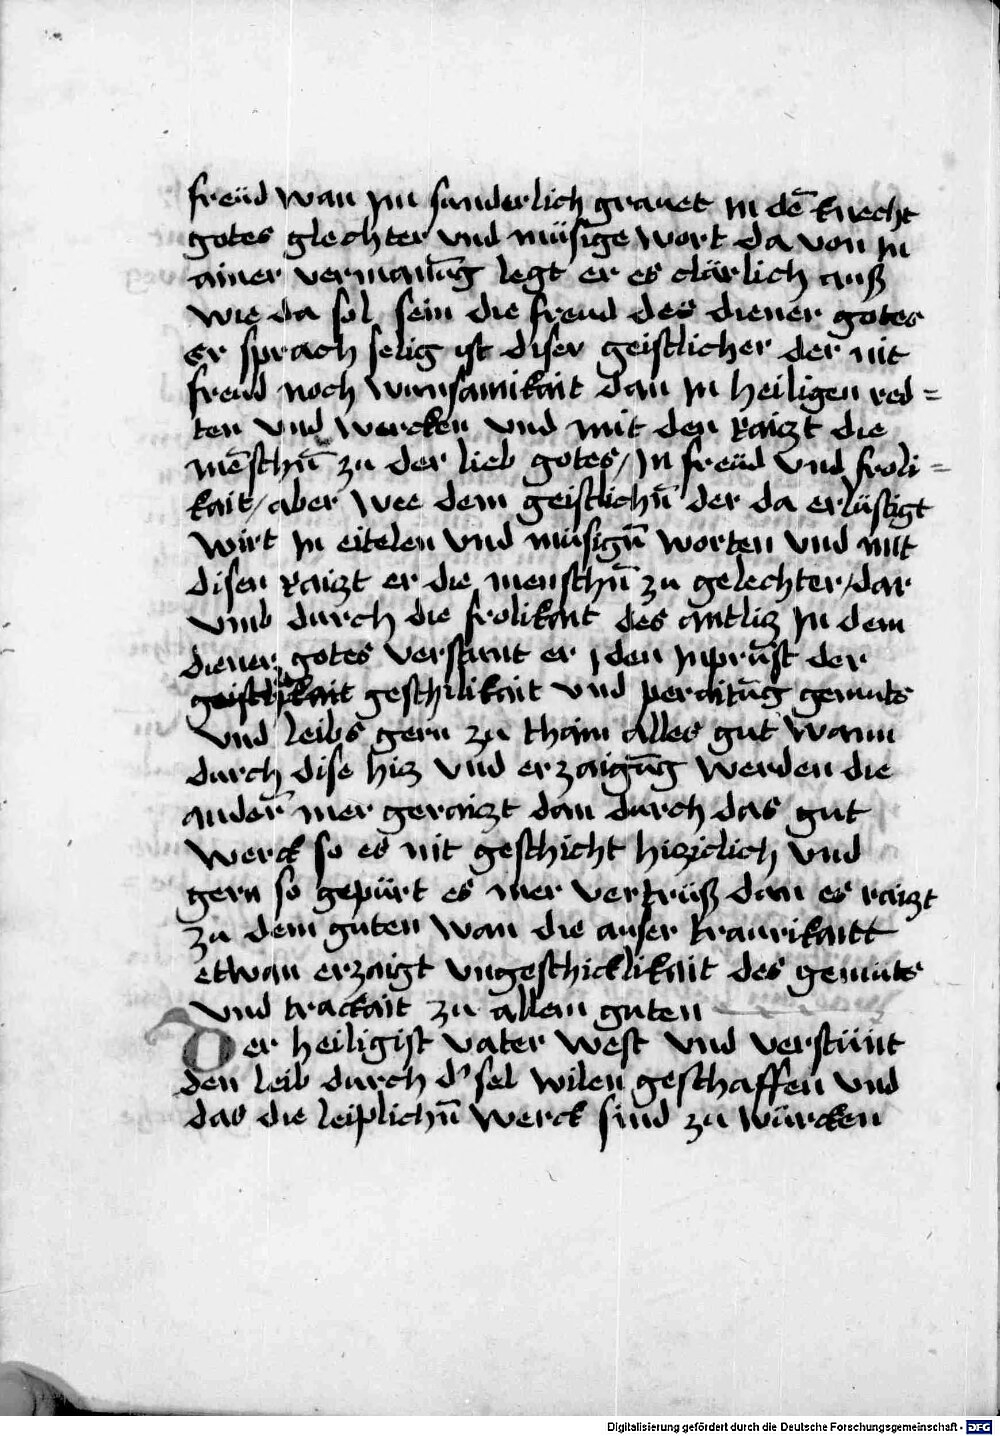 freüd wan im sunderlich grauet in dē knecht
gotes glechter vnd müsige wort da von in
ainer vermanūg legt er es clärlich auß
wie da sol sein die freud des diener gotes
er sprach selig ist diser geistlicher der nit
freud noch wunsamikait dan in heiligen red=
ten vnd wercken vnd mit den raizt die
mēschn̄ zu der lieb gotes / in freüd vnd froli=
kait / aber wee dem geistlichn̄ der da erlüstigt
wirt in eitelen vnd müsign̄ worten vnd mit
disen raizt er die menschn̄ zu gelechter / dar
vmb durch die frolikait des antliz in dem
diener gotes verstunt er den inprūst der
geschikikait vnd peraitūg gemuts
vnd leibs gern zu thain alles gut wann
durch dise hiz vnd erzaigūg werden die
ander̄ mer geraizt dan durch das gut
werck so es nit geschicht hiziclich vnd
gern so gepürt es mer verdrüß dan es raizt
zu dem guten wan die auser traurikaitt
etwan erzaigt vngeschicklikait des gemüts
vnd trackait zu allem guten
Der heiligist vater west vnd verstünt
den leib durch d' sel wilen geschaffen vnd
das die leiplichn̄ werck sind zu würcken
Digitalisierung gefördert durch die Deutsche Forschungsgemeinschaft - DFG